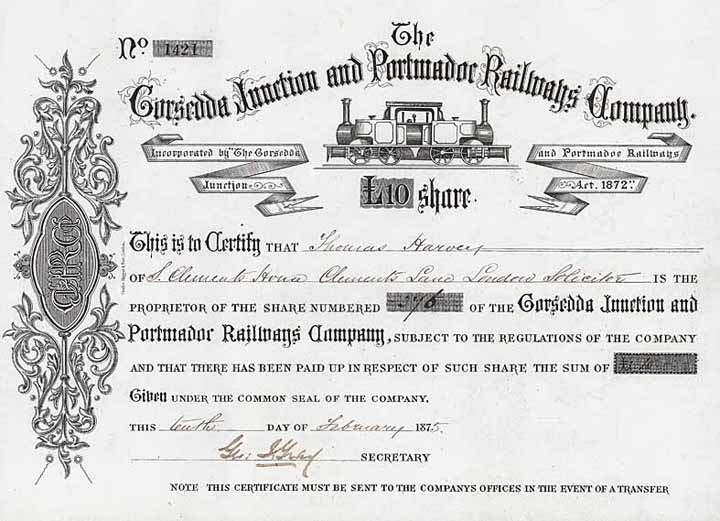 The
No 1421
Gorsedda Junction and Portmadoc Railways Company.
Incorporated by "The Gorsedda Junction and Portmadoc Railways Act. 1872".
£10 share.
This is to Certify THAT Thomas Harvey
OF St. Clements House Clements Lane London Solicitor IS THE
PROPRIETOR OF THE SHARE NUMBERED 376 OF THE Gorsedda Junction and
Portmadoc Railways Company, SUBJECT TO THE REGULATIONS OF THE COMPANY
AND THAT THERE HAS BEEN PAID UP IN RESPECT OF SUCH SHARE THE SUM OF
Given UNDER THE COMMON SEAL OF THE COMPANY.
THIS tenth DAY OF February 1875
Geo: SECRETARY
NOTE THIS CERTIFICATE MUST BE SENT TO THE COMPANYS OFFICES IN THE EVENT OF A TRANSFER